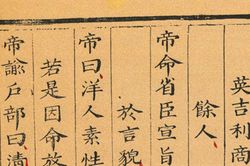 英吉利商
餘人
帝命省臣宣旨
於言貌
帝曰洋人素性
若是因命放
帝諭戶部曰